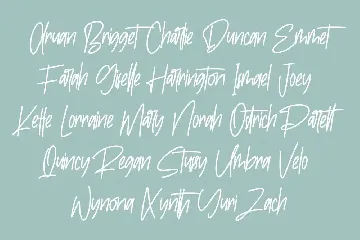 Aruan Brigget Charlie Duncan Emmet
Farrah Giselle Harrington Ismael Joey
Kelle Lorraine Mary Norah Ostrich Parrett
Quincy Regan Stussy Umbra Velo
Wynona Xynth Yuri Zach